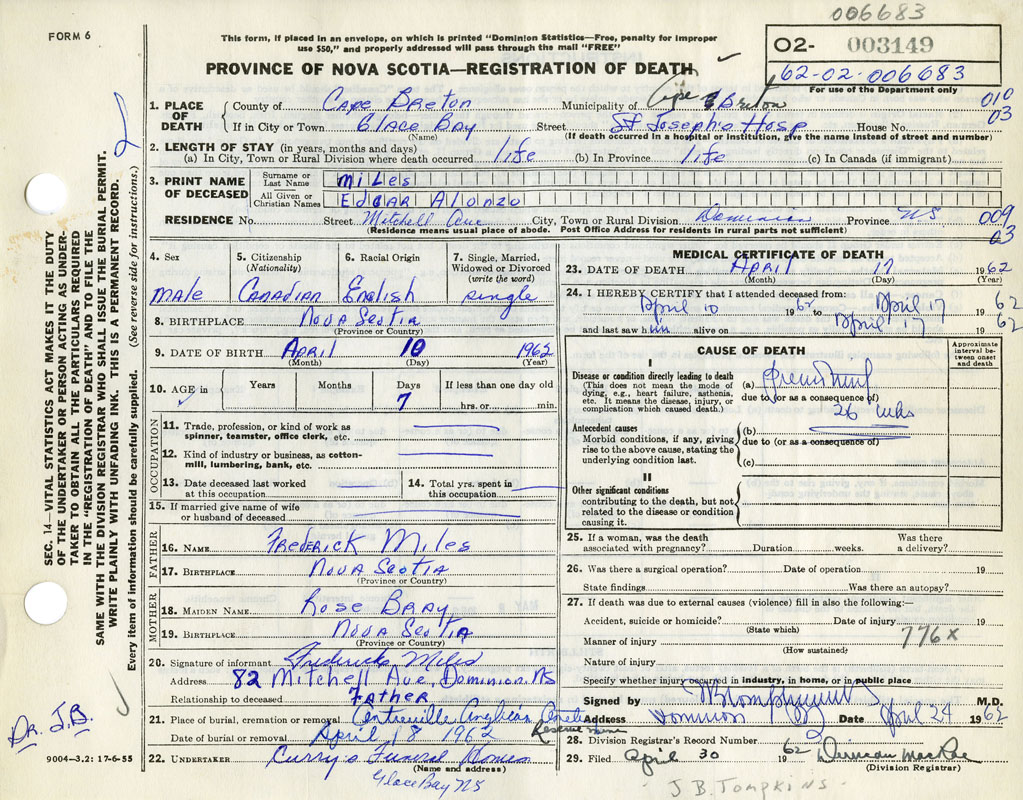 006683
FORM 6
This form, if placed in an envelope, on which is printed "Dominion Statistics—Free, penalty for improper
use $50," and properly addressed will pass through the mail "FREE"
02- 003149
PROVINCE OF NOVA SCOTIA—REGISTRATION OF DEATH
62-02-006683
For use of the Department only
1. PLACE OF DEATH
County of Cape Breton Municipality of Cape Breton 010
If in City or Town Glace Bay Street St Joseph's Hosp House No. 03
(Name) (If death occurred in a hospital or institution, give the name instead of street and number)
2. LENGTH OF STAY (in years, months and days)
(a) In City, Town or Rural Division where death occurred life (b) In Province life (c) In Canada (if immigrant)
3. PRINT NAME OF DECEASED
Surname or Last Name Miles
All Given or Christian Names Edgar Alonzo
RESIDENCE No. Street Mitchell Ave City, Town or Rural Division Dominion Province NS 009
(Residence means usual place of abode. Post Office Address for residents in rural parts not sufficient) 03
4. Sex 5. Citizenship (Nationality) 6. Racial Origin 7. Single, Married, Widowed or Divorced (write the word)
Male Canadian English single
8. BIRTHPLACE Nova Scotia
(Province or Country)
9. DATE OF BIRTH April 10 1962
(Month) (Day) (Year)
10. AGE in Years Months Days If less than one day old
7 hrs. or min.
OCCUPATION
11. Trade, profession, or kind of work as
spinner, teamster, office clerk, etc.
12. Kind of industry or business, as cotton-
mill, lumbering, bank, etc.
13. Date deceased last worked
at this occupation
14. Total yrs. spent in
this occupation
15. If married give name of wife
or husband of deceased
FATHER
16. NAME Frederick Miles
17. BIRTHPLACE Nova Scotia
(Province or Country)
MOTHER
18. MAIDEN NAME Rose Bray
19. BIRTHPLACE Nova Scotia
(Province or Country)
20. Signature of informant Frederick Miles
Address 82 Mitchell Ave, Dominion, NS
Relationship to deceased Father
21. Place of burial, cremation or removal Centreville Anglican
Reserve Mine
Date of burial or removal April 18 1962
22. UNDERTAKER Curry's Funeral Home
(Name and address)
Glace Bay NS
MEDICAL CERTIFICATE OF DEATH
23. DATE OF DEATH April 17 1962
(Month) (Day) (Year)
24. I HEREBY CERTIFY that I attended deceased from:
April 10 1962 to April 17 1962
and last saw him alive on April 17 1962
CAUSE OF DEATH
Approximate interval between onset and death
I
Disease or condition directly leading to death
(This does not mean the mode of
dying, e.g., heart failure, asthenia,
etc. It means the disease, injury, or
complication which caused death.)
(a)
due to (or as a consequence of)
26 wks
Antecedent causes
Morbid conditions, if any, giving
rise to the above cause, stating the
underlying condition last.
(b)
due to (or as a consequence of)
(c)
II
Other significant conditions
contributing to the death, but not
related to the disease or condition
causing it.
25. If a woman, was the death Was there
associated with pregnancy? Duration weeks. a delivery?
26. Was there a surgical operation? Date of operation 19
State findings Was there an autopsy?
27. If death was due to external causes (violence) fill in also the following:—
Accident, suicide or homicide? Date of injury 19
(State which)
776x
Manner of injury
(How sustained)
Nature of injury
Specify whether injury occurred in industry, in home, or in public place
Signed by M.D.
Address Dominion Date April 24 1962
28. Division Registrar's Record Number 2
29. Filed April 30 1962 Duncan MacRae
(Division Registrar)
J B Tompkins
SEC. 14—VITAL STATISTICS ACT MAKES IT THE DUTY
OF THE UNDERTAKER OR PERSON ACTING AS UNDER-
TAKER TO OBTAIN ALL THE PARTICULARS REQUIRED
IN THE "REGISTRATION OF DEATH" AND TO FILE THE
SAME WITH THE DIVISION REGISTRAR WHO SHALL ISSUE THE BURIAL PERMIT.
WRITE PLAINLY WITH UNFADING INK. THIS IS A PERMANENT RECORD.
Every item of information should be carefully supplied. (See reverse side for instructions.)
Dr. J.B.
9004—3.2: 17-6-55